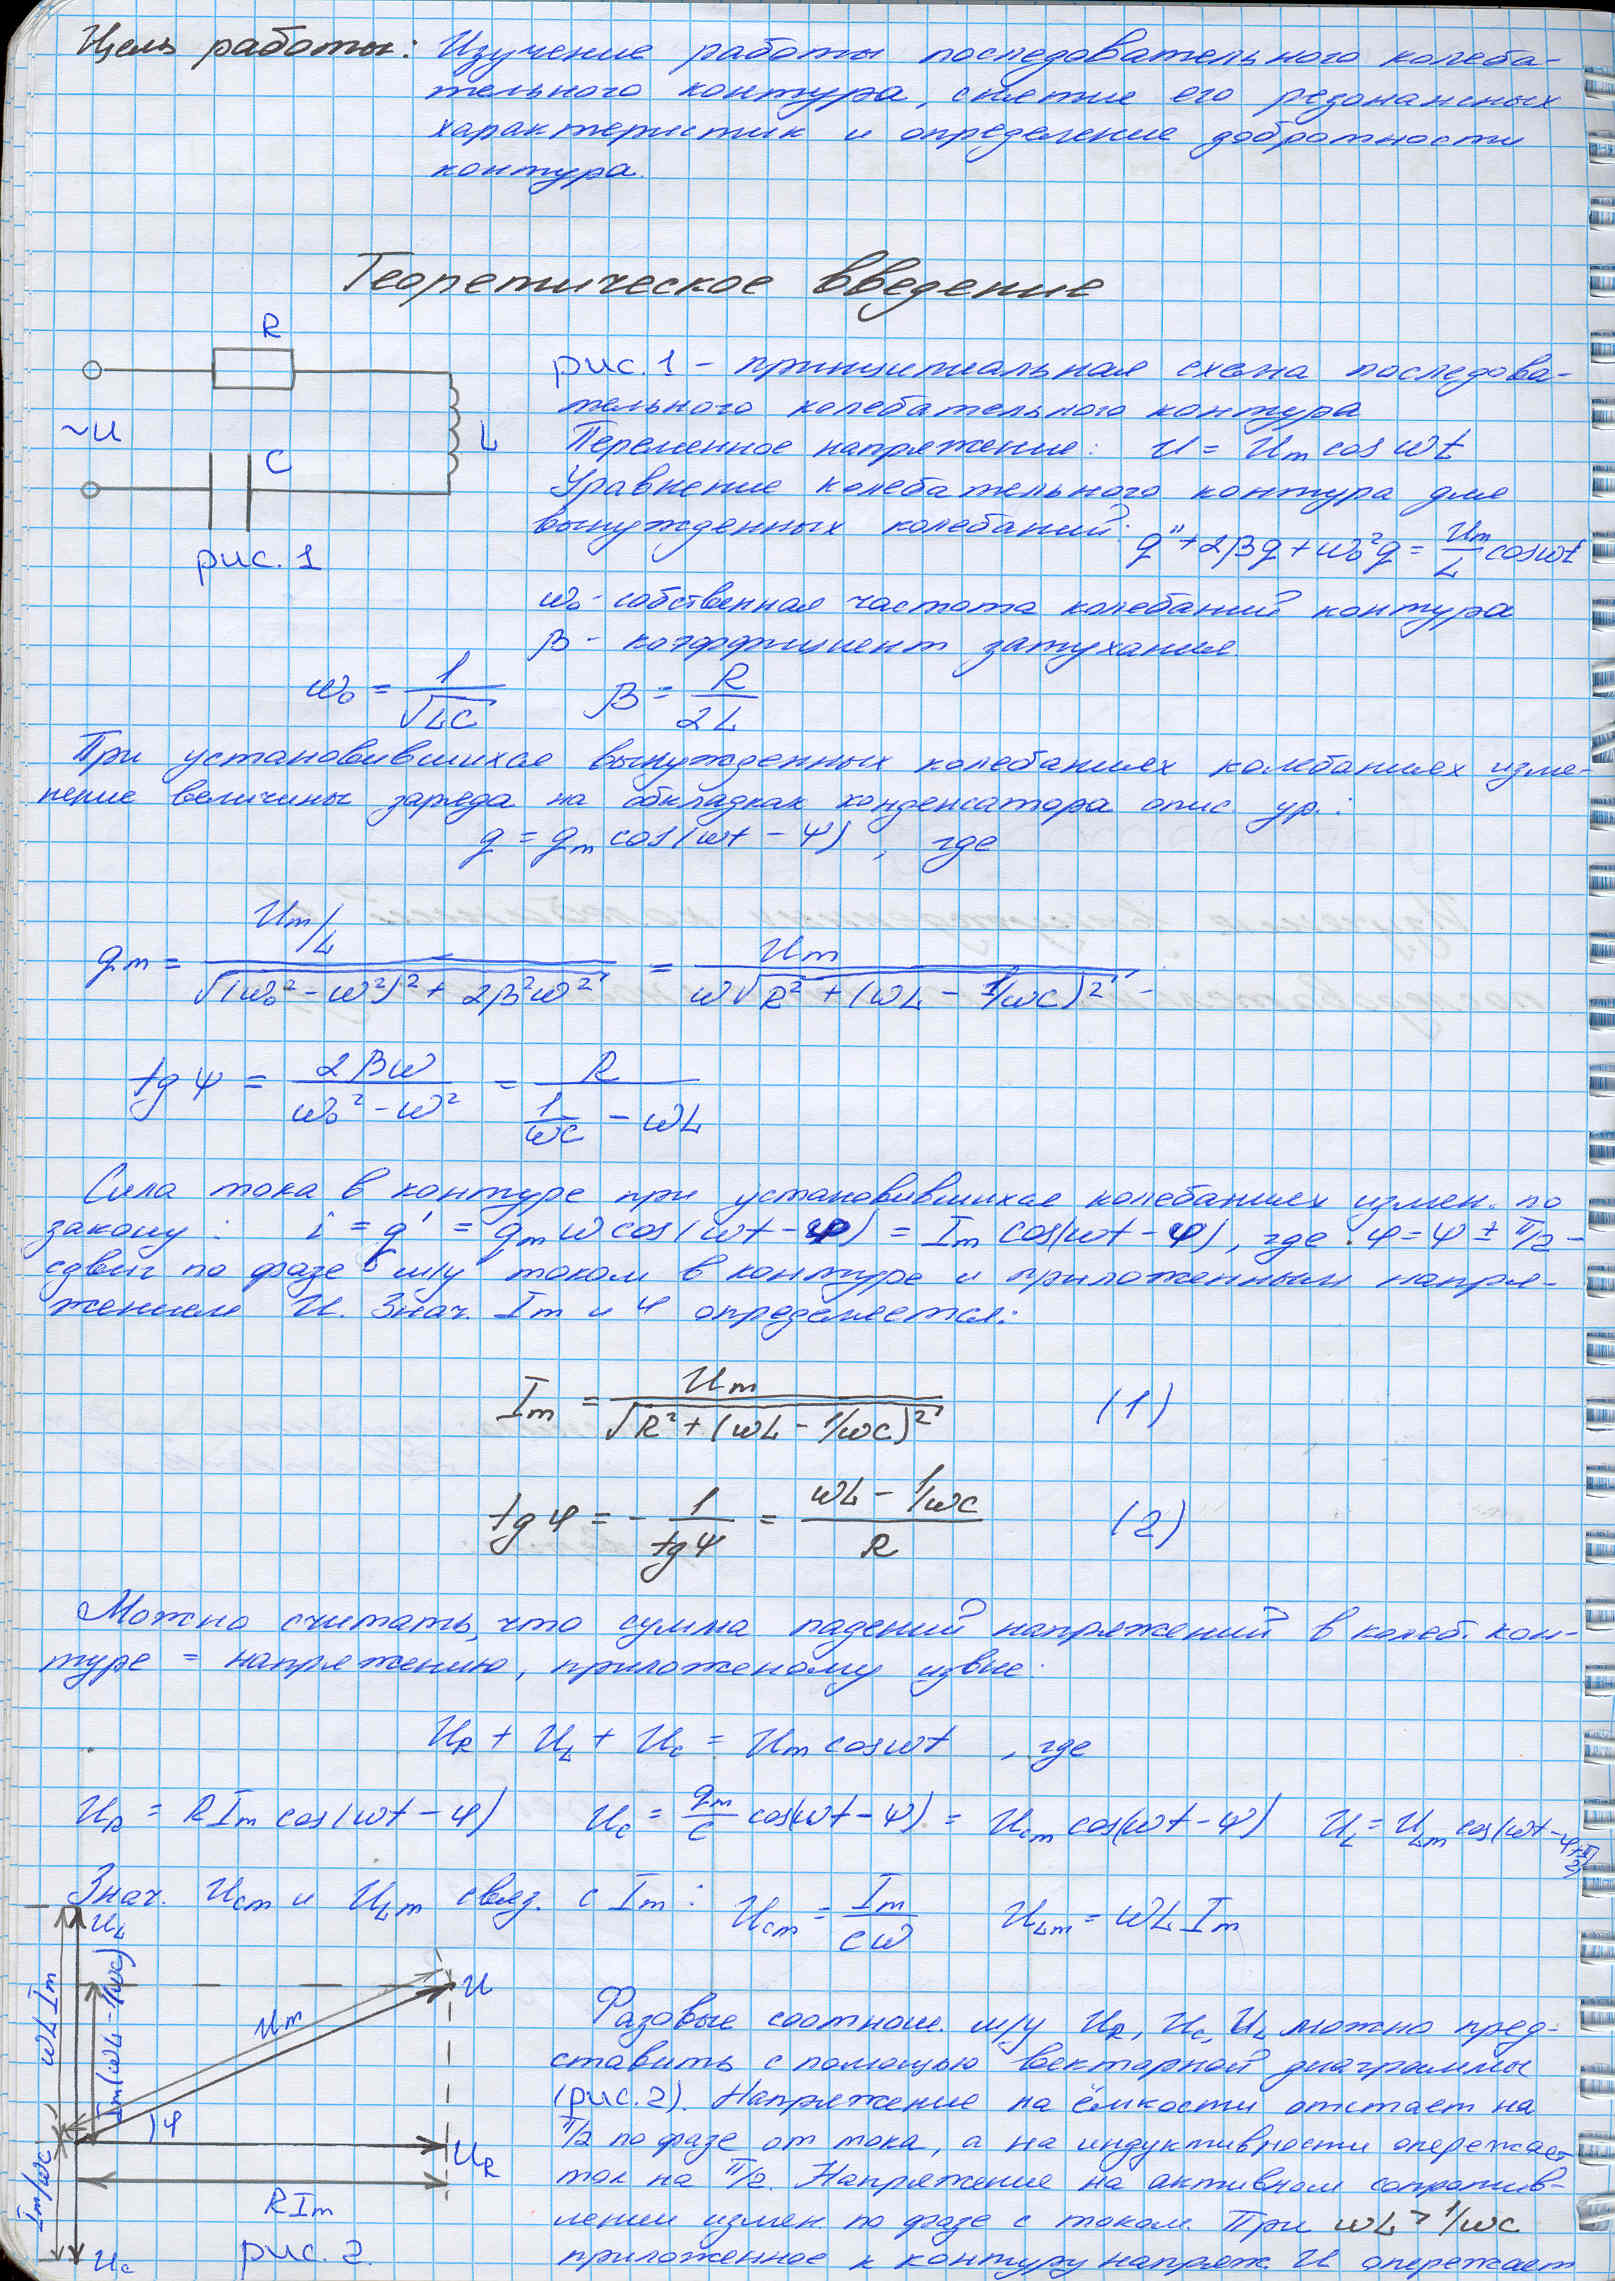 Цель работы: Изучение работы последовательного колеба-
тельного контура, снятие его резонансных
характеристик и определение добротности
контура.
Теоретическое введение
R
~U
L
C
рис. 1
рис. 1 - принципиальная схема последова-
тельного колебательного контура
Переменное напряжение: U = Um cos ωt
Уравнение колебательного контура для
вынужденных колебаний: q'' + 2βq + ω₀²q = Um/L cos ωt
ω₀ - собственная частота колебаний контура
β - коэффициент затухания.
ω₀ = 1/√LC β = R/2L
При установившихся вынужденных колебаниях колебаниях изме-
нение величины заряда на обкладках конденсатора опис. ур.:
q = qm cos(ωt - ψ), где
qm = (Um/L)/√((ω₀² - ω²)² + 2β²ω²) = Um/(ω√(R² + (ωL - 1/ωC)²)) -
tg ψ = 2βω/(ω₀² - ω²) = R/(1/ωC - ωL)
Сила тока в контуре при установившихся колебаниях измен. по
закону: i = q' = qm ω cos(ωt - φ) = Im cos(ωt - φ), где φ = ψ ± π/2 -
сдвиг по фазе м/у током в контуре и приложенным напря-
жением U. Знач. Im и φ определяется:
Im = Um/√(R² + (ωL - 1/ωC)²) (1)
tg φ = - 1/tg ψ = (ωL - 1/ωC)/R (2)
Можно считать, что сумма падений напряжений в колеб. кон-
туре = напряжению, приложеному извне.
UR + UL + UC = Um cos ωt , где
UR = R Im cos(ωt - φ) UC = qm/C cos(ωt - ψ) = UCm cos(ωt - ψ) UL = ULm cos(ωt - φ + π/2)
Знач. UCm и ULm связ. с Im: UCm = Im/Cω ULm = ωL Im
UL
ωL Im
Im(ωL - 1/ωC)
Um
U
φ
UR
Im/ωC
R Im
UC
рис. 2.
Фазовые соотнош. м/у UR, UC, UL можно пред-
ставить с помощью векторной диаграммы
(рис. 2). Напряжение на ёмкости отстает на
π/2 по фазе от тока, а на индуктивности опережает
ток на π/2. Напряжение на активном сопротив-
лении измен. по фазе с током. При ωL > 1/ωC
приложенное к контуру напряж. U опережает